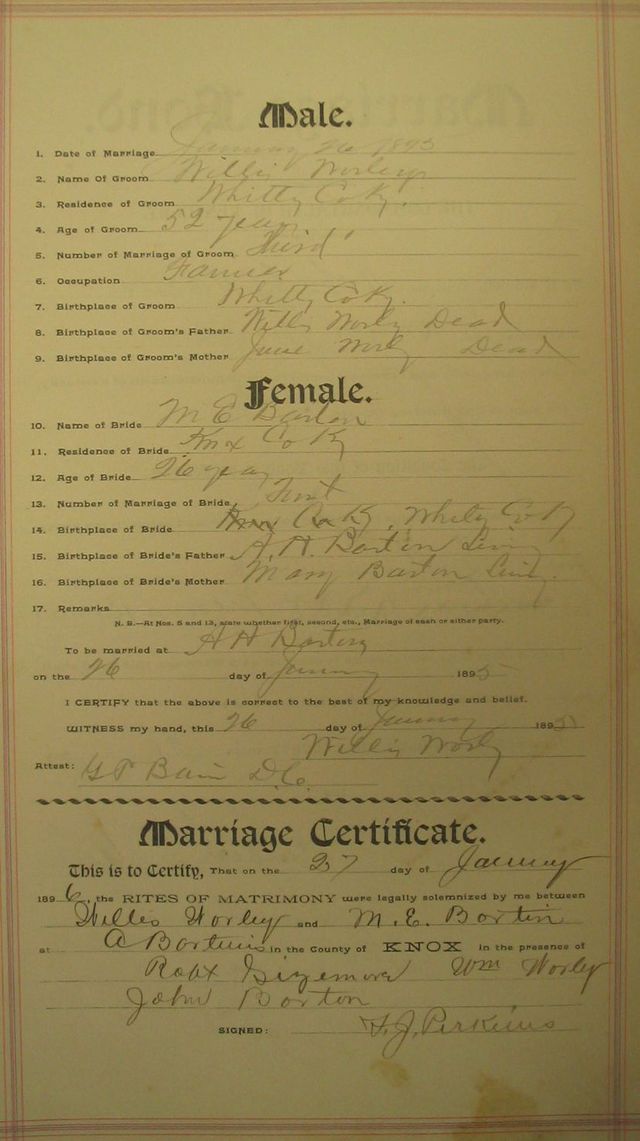 Male.
1. Date of Marriage January 26 1895
2. Name Of Groom Willis Worley
3. Residence of Groom Whitly Co Ky.
4. Age of Groom 52 years
5. Number of Marriage of Groom Third
6. Occupation Farmer
7. Birthplace of Groom Whitly Co Ky.
8. Birthplace of Groom's Father Willis Worly Dead
9. Birthplace of Groom's Mother Jane Worly Dead
Female.
10. Name of Bride M E Barton
11. Residence of Bride Knx Co Ky
12. Age of Bride 26 year
13. Number of Marriage of Bride First
14. Birthplace of Bride Co Ky, Whitly Co Ky
15. Birthplace of Bride's Father A. H. Barton Living
16. Birthplace of Bride's Mother Mary Barton Living.
17. Remarks
N. B.—At Nos. 5 and 13, state whether first, second, etc., Marriage of each or either party.
To be married at A H Bartons
on the 26 day of January 1895
I CERTIFY that the above is correct to the best of my knowledge and belief.
WITNESS my hand, this 26 day of January 1895
Willis Worly
Attest: Bain D.C.
Marriage Certificate.
This is to Certify, That on the 27 day of January
1896, the RITES OF MATRIMONY were legally solemnized by me between
Willes Worley and M. E. Bortin
at A Bortins in the County of KNOX in the presence of
Robt Gizemore Wm Worley
John Borton
SIGNED: F. J. Perkins